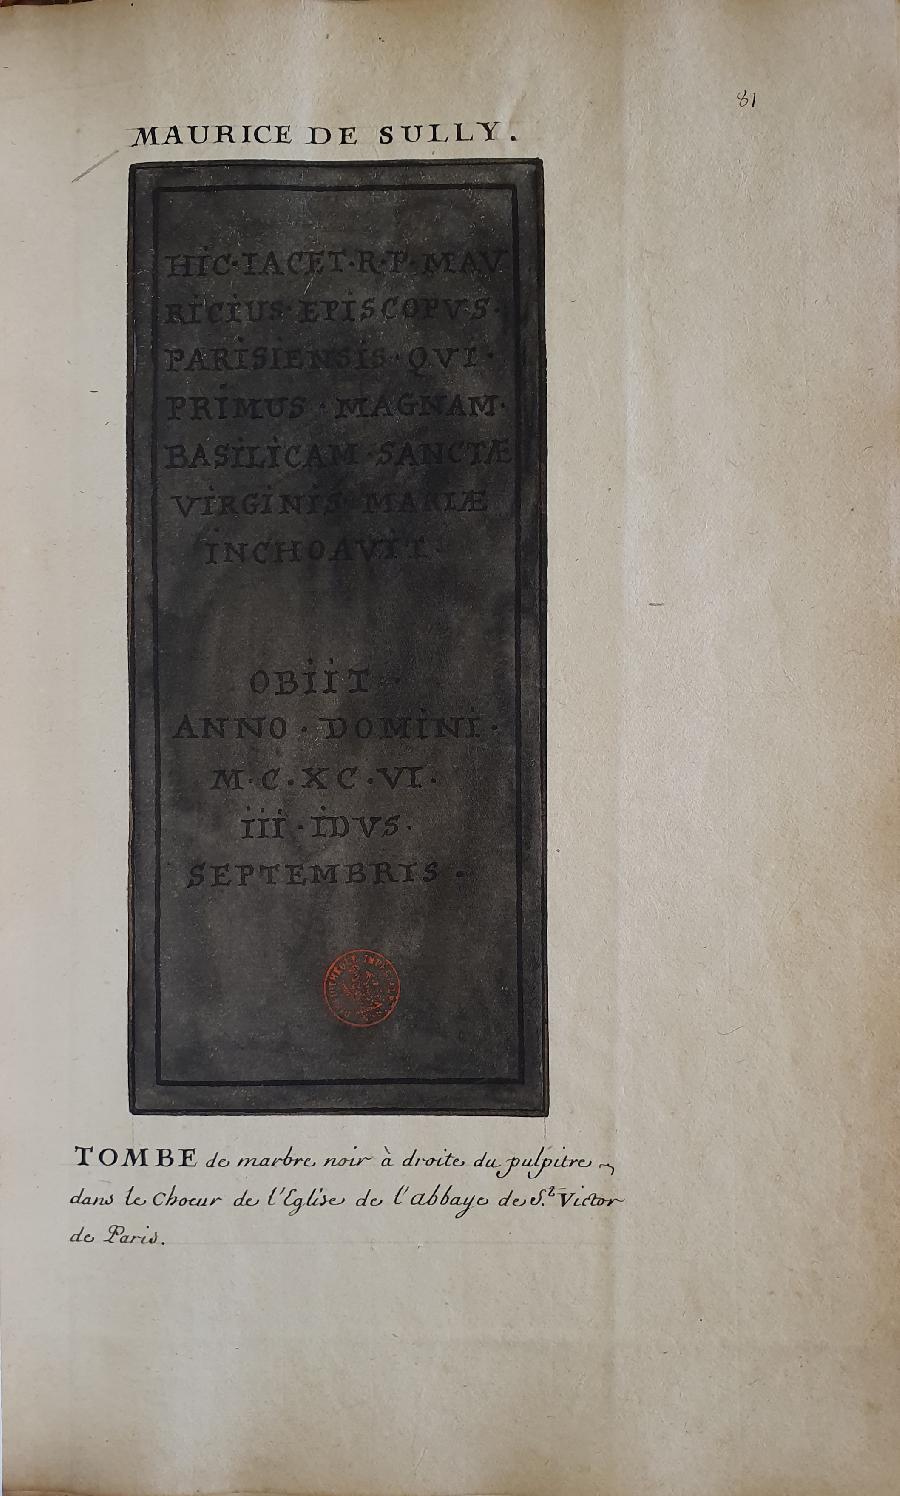 81
MAURICE DE SULLY.
HIC·IACET·R·P·MAV
RICIUS·EPISCOPVS·
PARISIENSIS·QVI·
PRIMUS·MAGNAM·
BASILICAM·SANCTÆ
VIRGINIS·MARIÆ
INCHOAVIT·
OBIIT·
ANNO·DOMINI·
M·C·XC·VI·
III·IDVS·
SEPTEMBRIS·
TOMBE de marbre noir à droite du pulpitre
dans le Choeur de l'Eglise de l'abbaye de S.t Victor
de Paris.